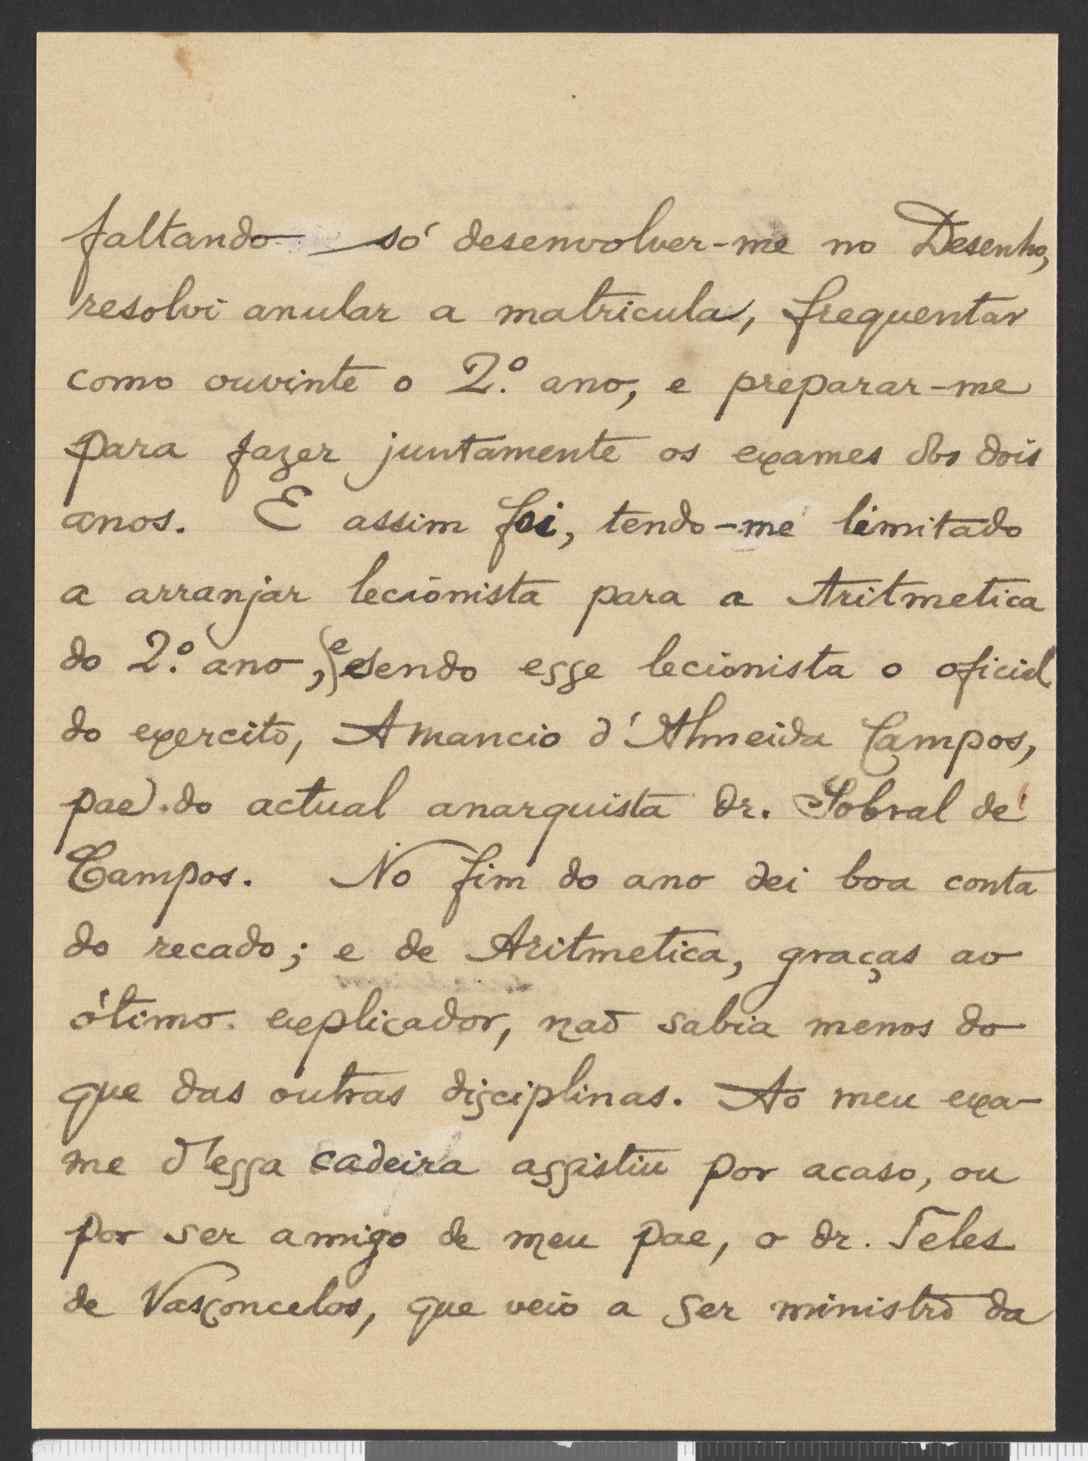 faltando só desenvolver-me no Desenho,
resolvi anular a matricula, frequentar
como ouvinte o 2.º ano, e preparar-me
para fazer juntamente os exames dos dois
anos. E assim foi, tendo-me limitado
a arranjar lecionista para a Aritmetica
do 2.º ano, e sendo esse lecionista o oficial
do exercito, Amancio d'Almeida Campos,
pae do actual anarquista dr. Sobral de
Campos. No fim do ano dei boa conta
do recado; e de Aritmetica, graças ao
ótimo explicador, não sabia menos do
que das outras disciplinas. Ao meu exa-
me d'essa cadeira assistiu por acaso, ou
por ser amigo de meu pae, o dr. Teles
de Vasconcelos, que veio a ser ministro da